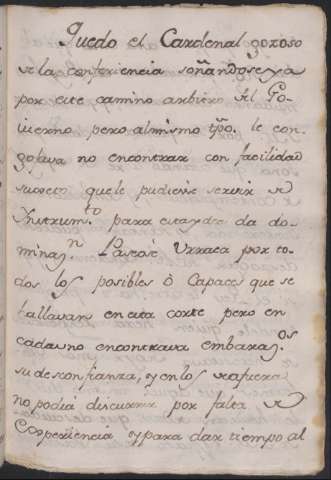 Quedo el Cardenal gozoso
de la conferiencia soñandose ya
por este camino arbitro del Go-
vierno pero al mismo tpo. le con-
gojava no encontrar con facilidad
sugeto que le pudiese servir de
Ynstrumto para esta
domina
n Paseose Urraca por to-
dos los posibles ò Capaces que se
hallavan en esta corte pero en
cada uno encontrava embarazos
su desconfianza, y en los de afuera
no podia discurrir por falta de
Experiencia y para dar tiempo al